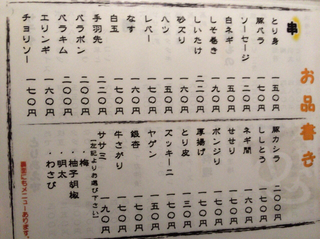 お品書き
串
とり身 一五〇円
豚バラ 一七〇円
ソーセージ 二〇〇円
白ネギ 一五〇円
しそ巻き 一九〇円
しいたけ 二二〇円
砂ズリ 一五〇円
ハツ 一五〇円
レバー 一五〇円
なす 一六〇円
白玉 一七〇円
手羽先 二〇〇円
バラポン 二〇〇円
バラキム 二〇〇円
エリンギ 一六〇円
チョリソー 一七〇円
豚カシラ 二〇〇円
ししとう 一七〇円
ネギ間 一六〇円
せせり 一七〇円
ボンジリ 一七〇円
厚揚げ 一七〇円
とり皮 一三〇円
ズッキーニ 一七〇円
ヤゲン 一五〇円
銀杏 一七〇円
牛さがり 一七〇円
ササミ 一九〇円
(左記よりお選び下さい)
・梅
・柚子胡椒
・明太
・わさび
裏面にもメニューあります。